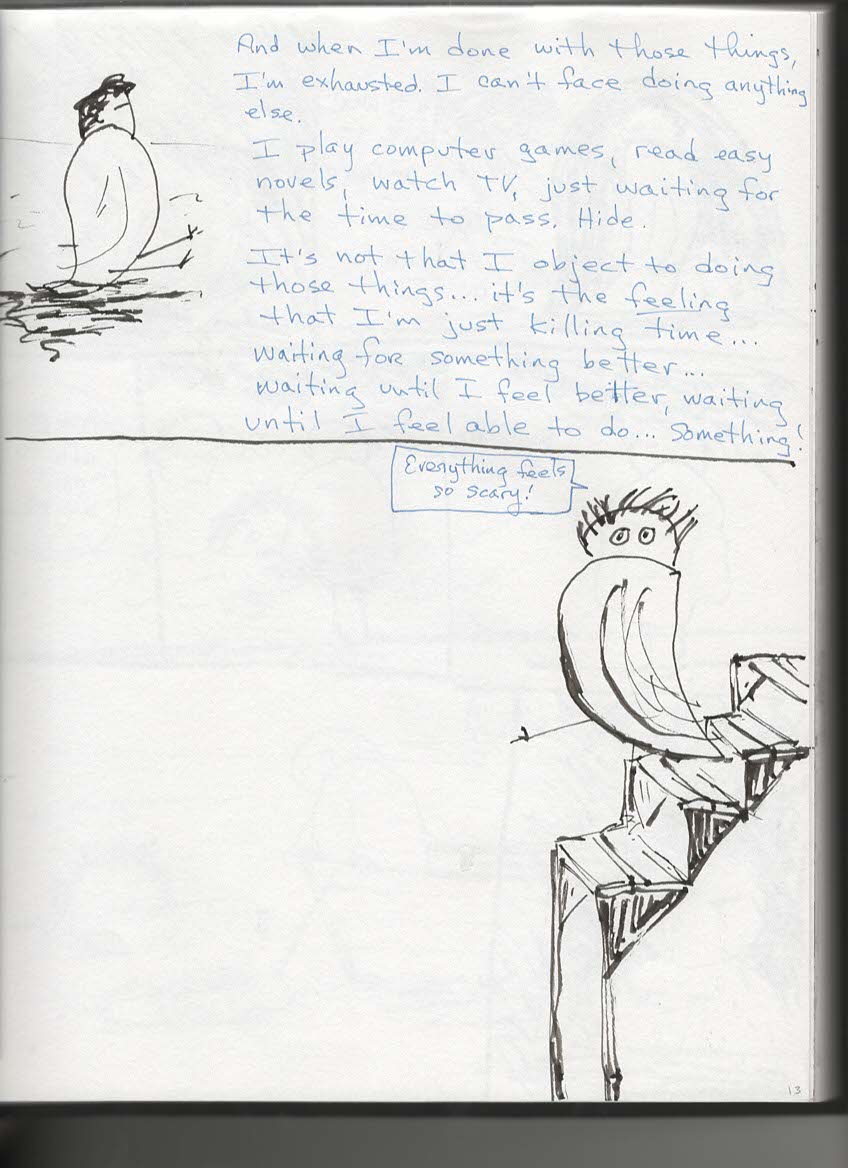 And when I'm done with those things,
I'm exhausted. I can't face doing anything
else.
I play computer games, read easy
novels, watch TV, just waiting for
the time to pass. Hide.
It's not that I object to doing
those things... it's the feeling
that I'm just killing time...
waiting for something better...
waiting until I feel better, waiting
until I feel able to do... Something!
Everything feels
so scary!
13